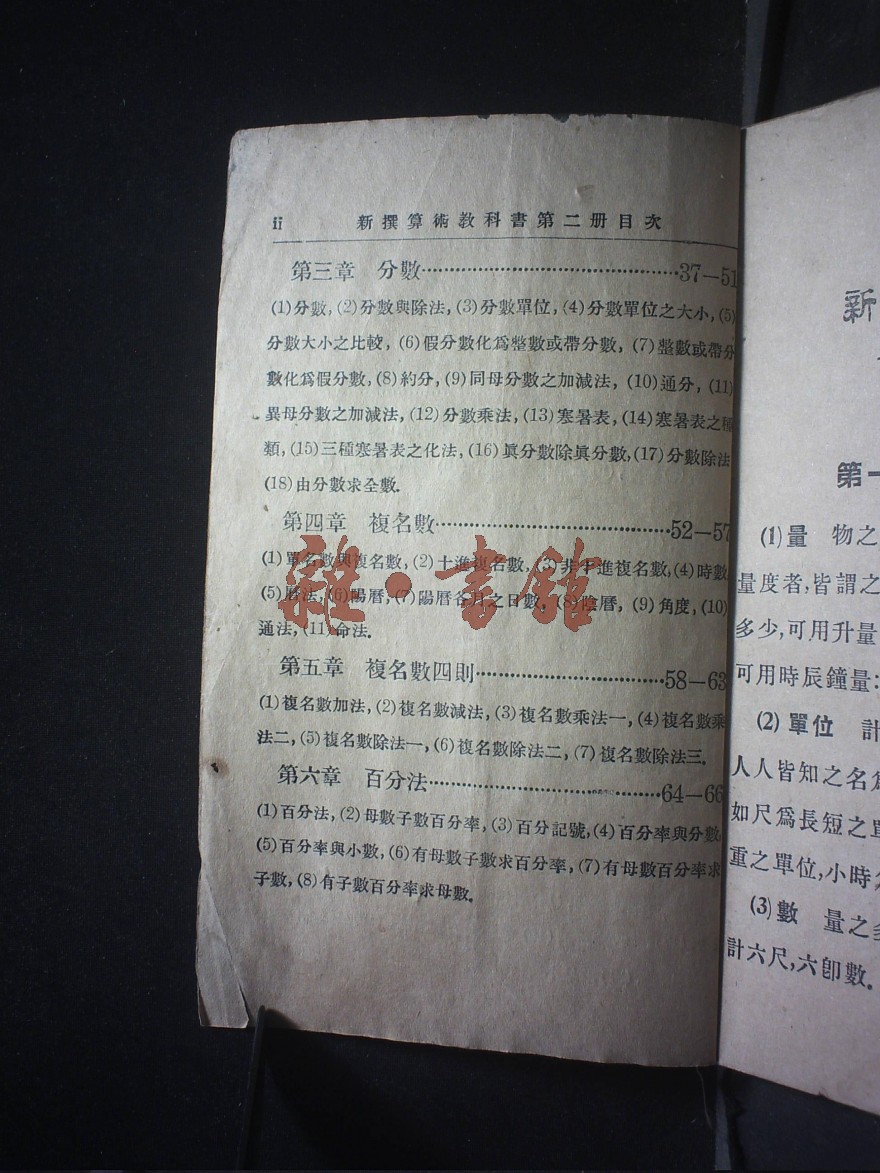 ii 新撰算術教科書第二册目次
第三章 分數……37—51
(1)分數,(2)分數與除法,(3)分數單位,(4)分數單位之大小,(5)
分數大小之比較,(6)假分數化爲整數或帶分數,(7)整數或帶分
數化爲假分數,(8)約分,(9)同母分數之加減法,(10)通分,(11)
異母分數之加減法,(12)分數乘法,(13)寒暑表,(14)寒暑表之種
類,(15)三種寒暑表之化法,(16)眞分數除眞分數,(17)分數除法
(18)由分數求全數.
第四章 複名數……52—57
(1)單名數與複名數,(2)十進複名數,(3)非十進複名數,(4)時數
(5)曆法,(6)陽曆,(7)陽曆各月之日數,(8)陰曆,(9)角度,(10)
通法,(11)命法.
第五章 複名數四則……58—63
(1)複名數加法,(2)複名數減法,(3)複名數乘法一,(4)複名數乘
法二,(5)複名數除法一,(6)複名數除法二,(7)複名數除法三.
第六章 百分法……64—66
(1)百分法,(2)母數子數百分率,(3)百分記號,(4)百分率與分數
(5)百分率與小數,(6)有母數子數求百分率,(7)有母數百分率求
子數,(8)有子數百分率求母數.
雜·書館
新
第一
(1)量 物之
量度者,皆謂之
多少,可用升量
可用時辰鐘量:
(2)單位 計
人人皆知之名爲
如尺爲長短之單
重之單位,小時
(3)數 量之多
計六尺,六卽數.